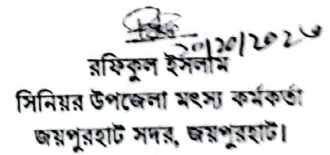 রফিকুল ইসলাম
সিনিয়র উপজেলা মৎস্য কর্মকর্তা
জয়পুরহাট সদর, জয়পুরহাট।